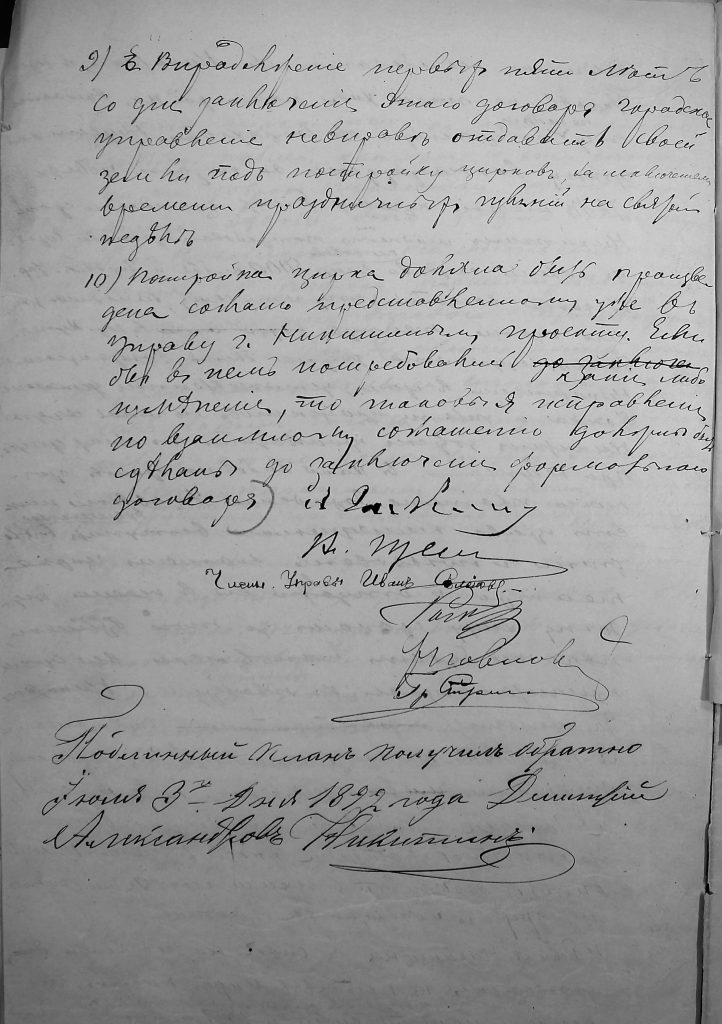 9) Въ продолженіе первыхъ пяти лѣтъ
со дня заключенія этого договора городское
управленіе невправѣ отдавать своей
земли подъ постройку цирковъ, за исключеніем
времени праздничныхъ гуляній на святой
недѣлѣ
10) Постройка цирка должна быть произве
дена согласно представленному уже въ
управу г. Никитинымъ проекту. Если
бы въ немъ потребовались до заключен
какія либо
измѣненія, то таковыя исправленія
по взаимному соглашенію должны быть
сдѣланы до заключенія формальнаго
договора)
Члены Управы Иванъ
Павловъ
Гр.
Подлинный планъ получилъ обратно
Іюля 3го дня 1892 года Дмитрий
Александровъ Никитинъ